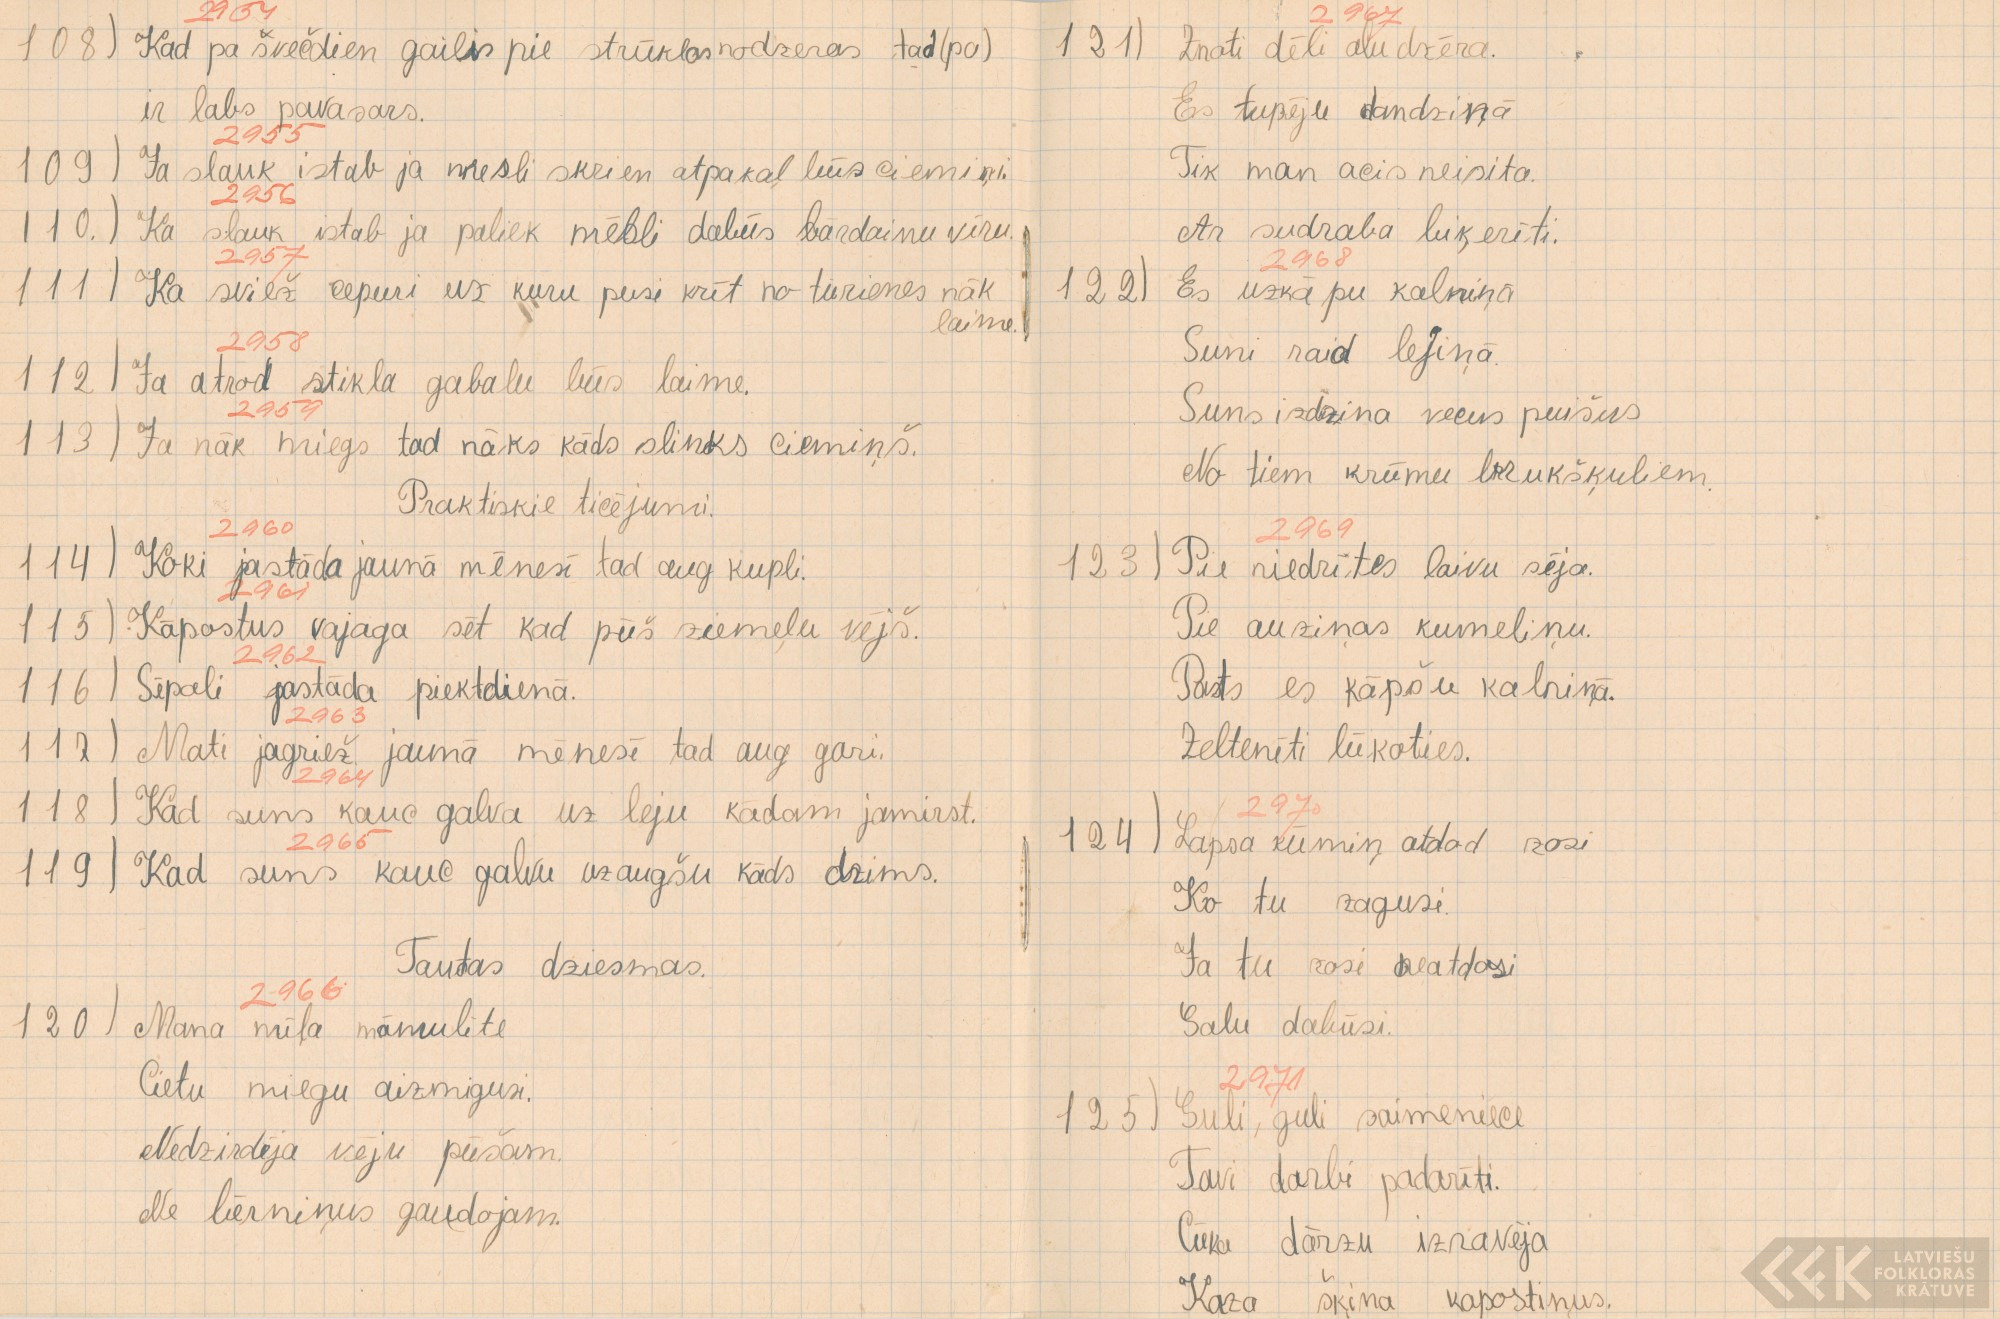 2954
108) Kad pa švečdien gailis pie strūklas nodzeras tad (pa)
ir labs pavasars.
2955
109) Ja slauk istab ja mesli skrien atpakaļ būs ciemiņi.
2956
110.) Ka slauk istab ja paliek mēsli dabūs bārdainu vīru.
2957
111) Ka sviež cepuri uz kuru pusi krīt no turienes nāk
laime.
2958
112) Ja atrod stikla gabalu būs laime.
2959
113) Ja nāk miegs tad nāks kāds slinks ciemiņš.
Praktiskie ticējumi.
2960
114) Koki jastāda jaunā mēnesī tad aug kupli.
2961
115) Kāpostus vajaga sēt kad pūš ziemeļu vējš.
2962
116) Sīpali jastāda piektdienā.
2963
117) Mati jagriež jaunā mēnesī tad aug gari.
2964
118) Kad suns kauc galva uz leju kādam jamirst.
2965
119) Kad suns kauc galvu uzaugšu kāds dzims.
Tautas dziesmas.
2966
120) Mana mīļa māmulite
Cietu miegu aizmigusi.
Nedzirdēja vēju pūšam.
Ne bērniņus gaudojam.
2967
121) Znoti dēli alu dzēra.
Es tupēju dandziņā
Tik man acis neisita.
Ar sudraba liķerīti.
2968
122) Es uzkāpu kalniņā
Suni raid lejiņā.
Suns izdzina vecus puišus
No tiem krūmu brukšķuliem.
2969
123) Pie niedrītes laivu sēja.
Pie auziņas kumeliņu.
Pats es kāpšu kalniņā.
Zeltenīti lūkoties.
2970
124) Lapsa kūmiņ atdod zosi
Ko tu zagusi.
Ja tu zosi neatdosi
Galu dabūsi.
2971
125) Guli, guli saimeniece
Tavi darbi padarīti.
Cūka dārzu izravēja
Kaza šķina kapostiņus.
LATVIEŠU
FOLKLORAS
KRĀTUVE